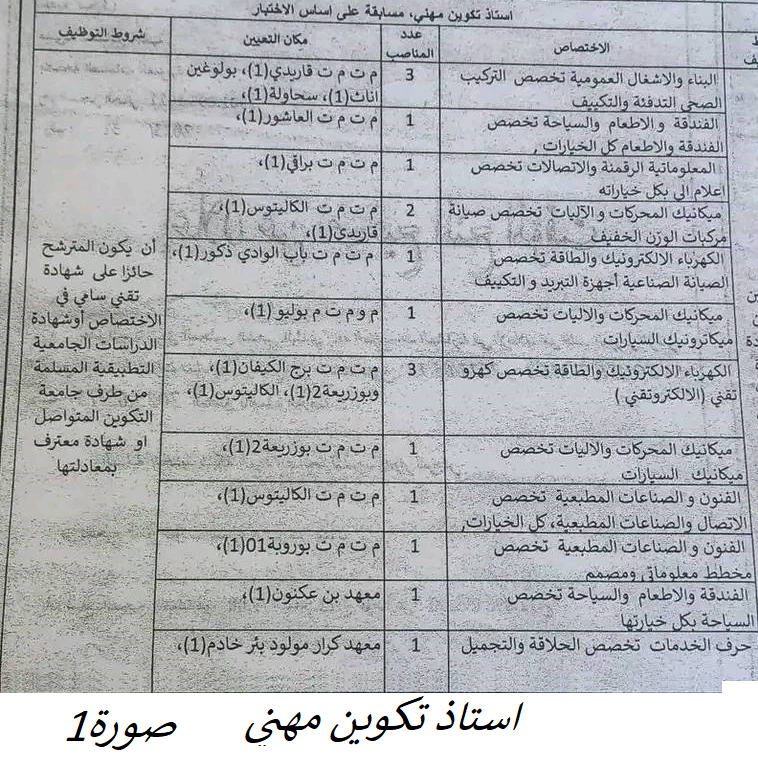 استاذ تكوين مهني، مسابقة على اساس الاختبار
الاختصاص
عدد المناصب
مكان التعيين
شروط التوظيف
البناء والاشغال العمومية تخصص التركيب
الصحي التدفئة والتكييف
3
م ت م ت قاريدي(1)، بولوغين
اناث(1)، سحاولة(1)،
الفندقة و الاطعام والسياحة تخصص
الفندقة والاطعام كل الخيارات ,
1
م ت م ت العاشور(1)،
المعلوماتية الرقمنة والاتصالات تخصص
اعلام الي بكل خياراته
1
م ت م ت براقي(1)،
ميكانيك المحركات و الآليات تخصص صيانة
مركبات الوزن الخفيف
2
م ت م ت الكاليتوس(1)،
قاريدي(1)،
الكهرباء الالكترونيك والطاقة تخصص
الصيانة الصناعية أجهزة التبريد و التكييف
1
م ت م ت باب الوادي ذكور(1)،
ميكانيك المحركات والاليات تخصص
ميكاترونيك السيارات
1
م و م ت م بوليو (1)،
الكهرباء الالكترونيك والطاقة تخصص كهرو
تقني (الالكتروتقني )
3
م ت م ت برج الكيفان(1)،
وبوزريعة2(1)، الكاليتوس(1)،
ميكانيك المحركات والاليات تخصص
ميكانيك السيارات
1
م ت م ت بوزريعة2(1)،
الفنون و الصناعات المطبعية تخصص
الاتصال والصناعات المطبعية، كل الخيارات,
1
م ت م ت الكاليتوس(1)،
الفنون و الصناعات المطبعية تخصص
مخطط معلوماتي ومصمم
1
م ت م ت بوروبة01(1)،
الفندقة والاطعام والسياحة تخصص
السياحة بكل خيارتها
1
معهد بن عكنون(1)،
حرف الخدمات تخصص الحلاقة والتجميل
1
معهد كرار مولود بئر خادم(1)،
أن يكون المترشح
حائزا على شهادة
تقني سامي في
الاختصاص أوشهادة
الدراسات الجامعية
التطبيقية المسلمة
من طرف جامعة
التكوين المتواصل
او شهادة معترف
بمعادلتها
استاذ تكوين مهني
صورة1